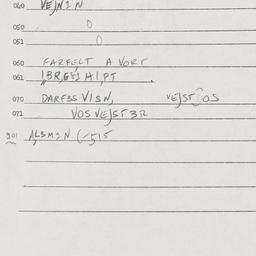 040 VEJN2N
050 0
051 0
060 FARFELT A VORT
061 IBRGEJHIPT.
070 DARF3S VISN, VEJST OS
071 VOSVEJST3R
901 ALSM2N (-515